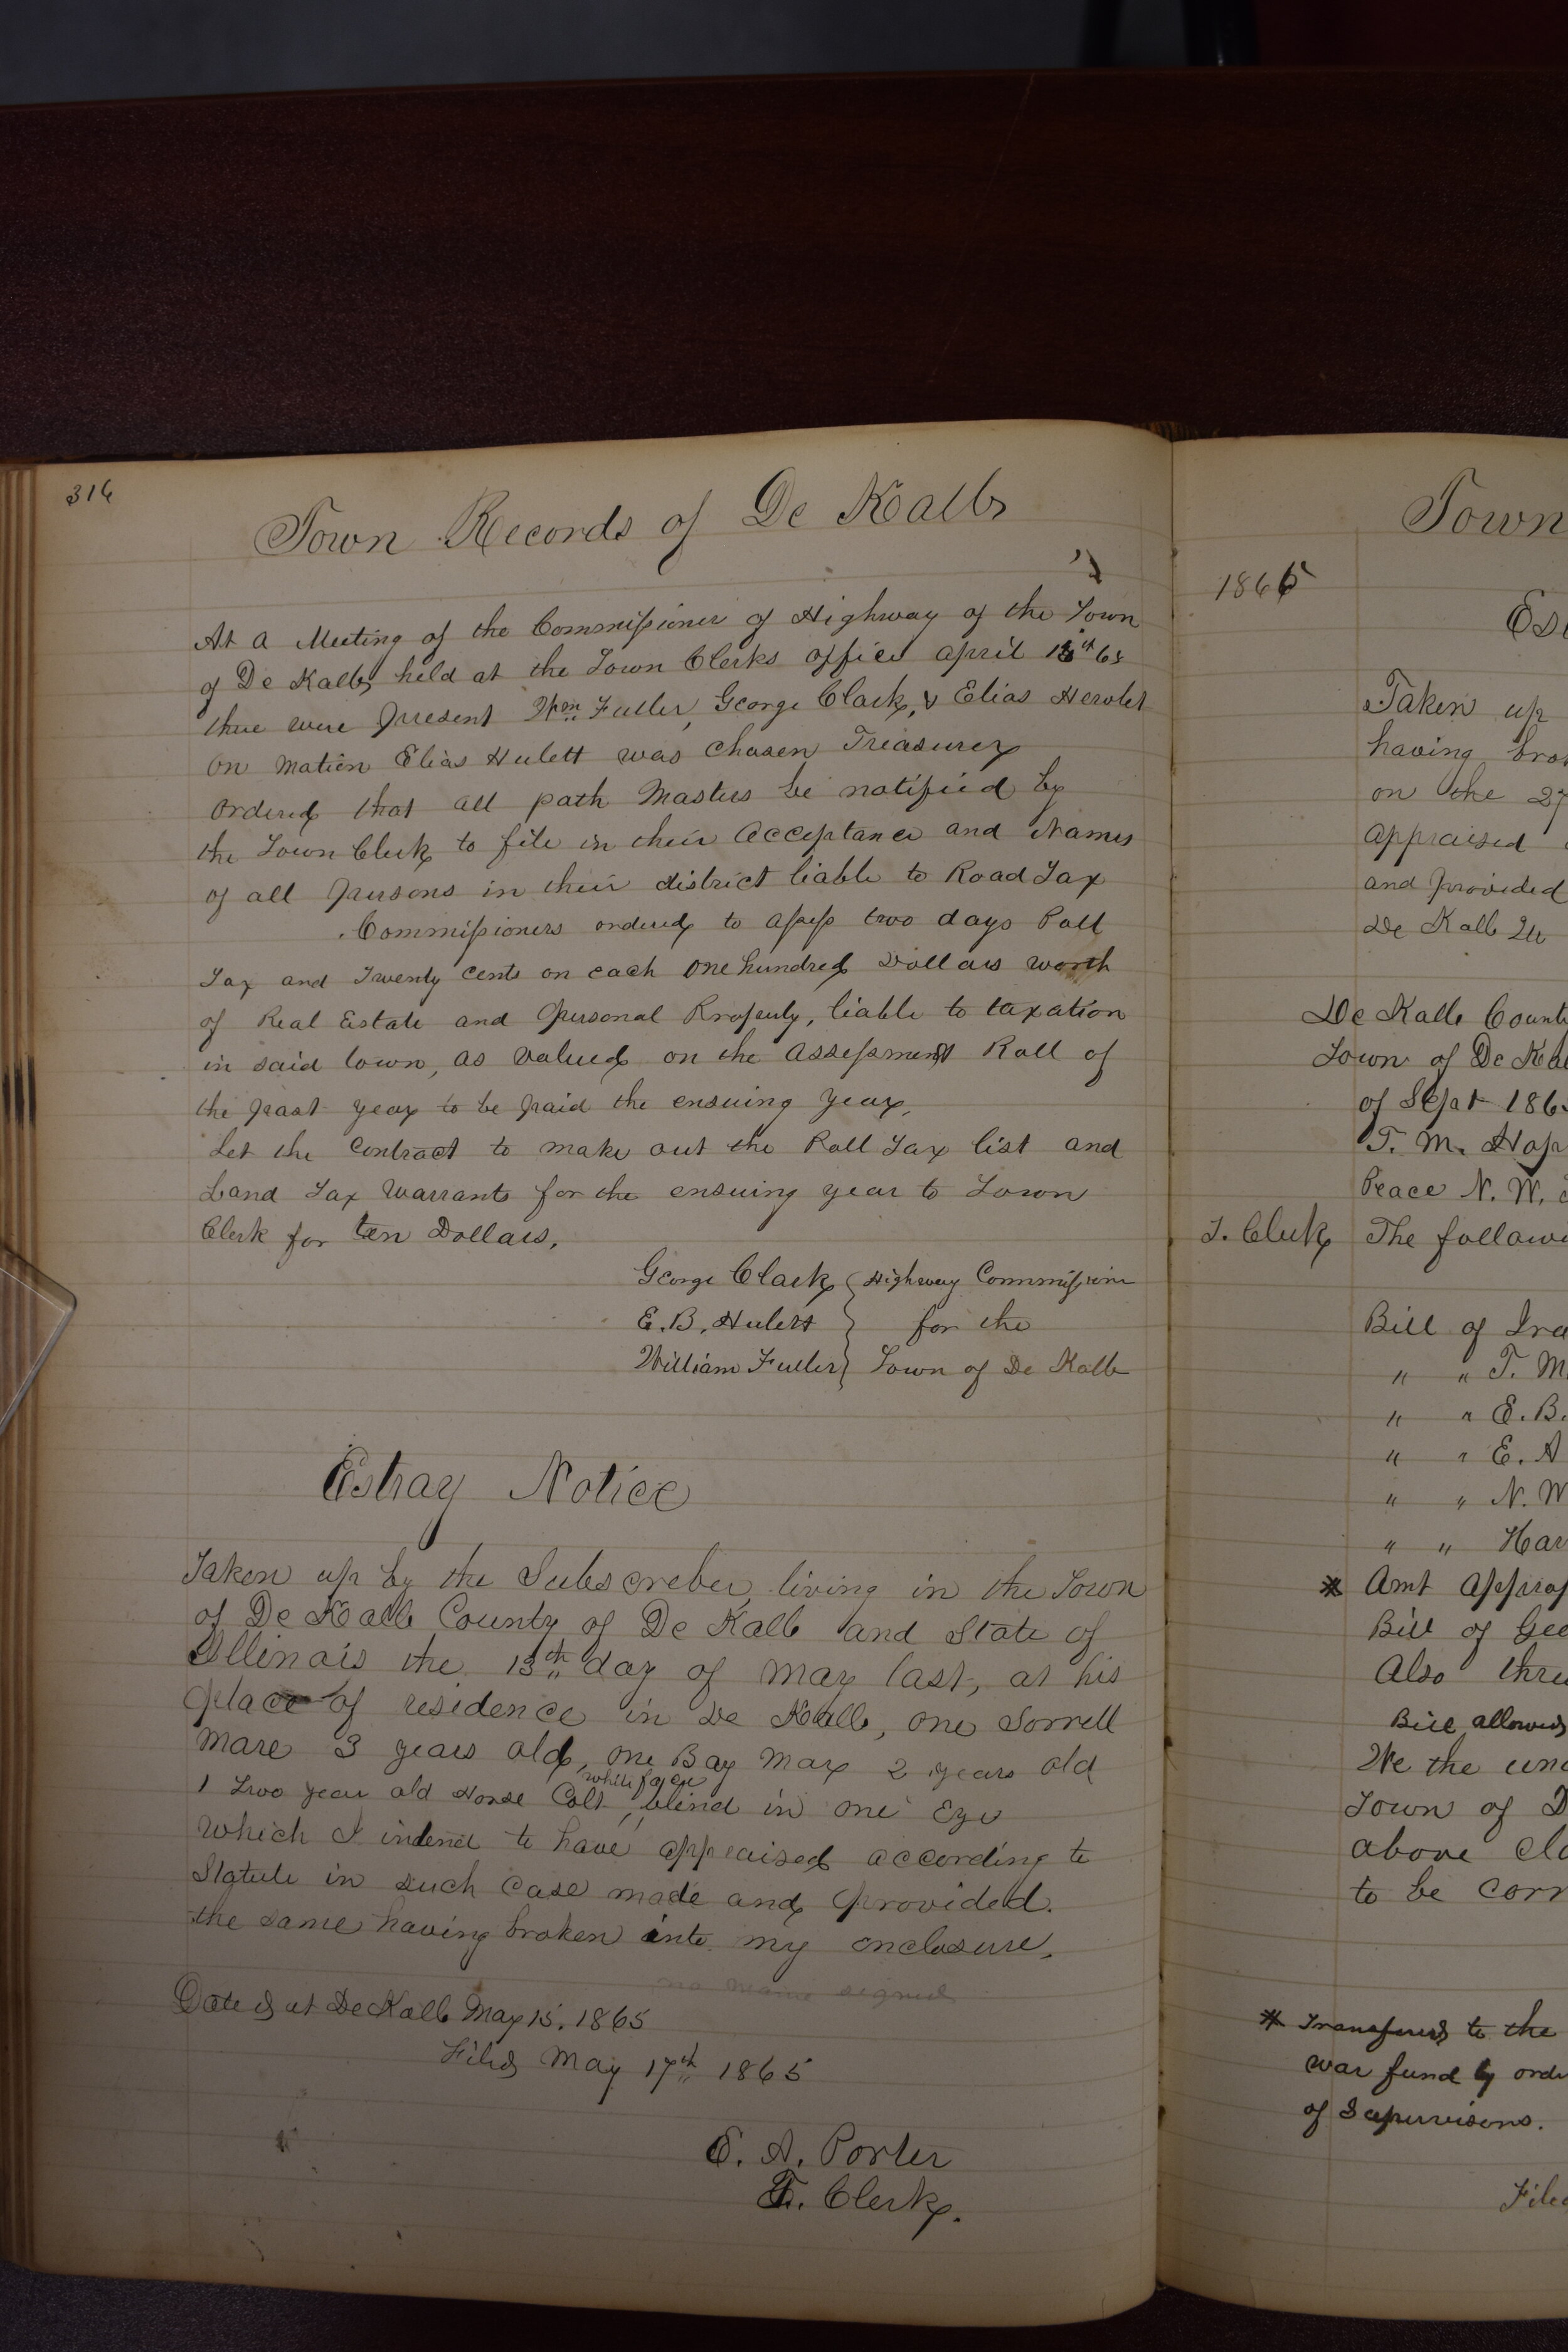 316
Town Records of De Kalb
At a Meeting of the Commissioner of Highway of the Town
of De Kalb held at the Town Clerks office april 15th 65
there were present Wm Fuller, George Clark, & Elias Hewlet
on Motion Elias Hulett was Chosen Treasurer
ordered that all path Masters be notified by
the Town Clerk to file in their Acceptance and Names
of all persons in their district liable to Road Tax
Commissioners ordered to assess two days Poll
Tax and Twenty Cents on each one hundred Dollars worth
of Real Estate and personal Property, liable to taxation
in said town, as valued on the Assessment Roll of
the past year to be paid the ensuing year,
Let the Contract to make out the Poll Tax list and
Land Tax Warrants for the ensuing year to Town
Clerk for ten Dollars.
George Clark Highway Commissioner
E. B. Hulett for the
William Fuller Town of De Kalb
Estray Notice
Taken up by the Subscreber, living in the Town
of De Kalb County of De Kalb and State of
Illinois the 13th day of May last, at his
place of residence in De Kalb, one Sorrell
Mare 3 years old, one Bay Mare 2 years old
white face
1 Two year old Horse Colt, blind in one Eye
which I intend to have appraised according to
Statute in such Case made and provided.
the same having broken into my enclosure.
no name signed
Dated at De Kalb May 15, 1865
Filed May 17th 1865
E. A. Porter
T. Clerk.
Town
1865
Taken up
having bro
on the 27
Appraised
and provided
De Kalb
De Kalb Count
Town of De Ka
of Sept 186
T. M. Hop
Peace N. W.
T. Clerk The followi
Bill of Ira
" " T. M
" " E. B.
" " E. A
" " N. W
" " Har
* Amt approp
Bill of Geo
Also thre
Bill allowed
We the und
Town of D
above cla
to be corr
* Transfered to the
war fund by orde
of Supervisors.
Filed